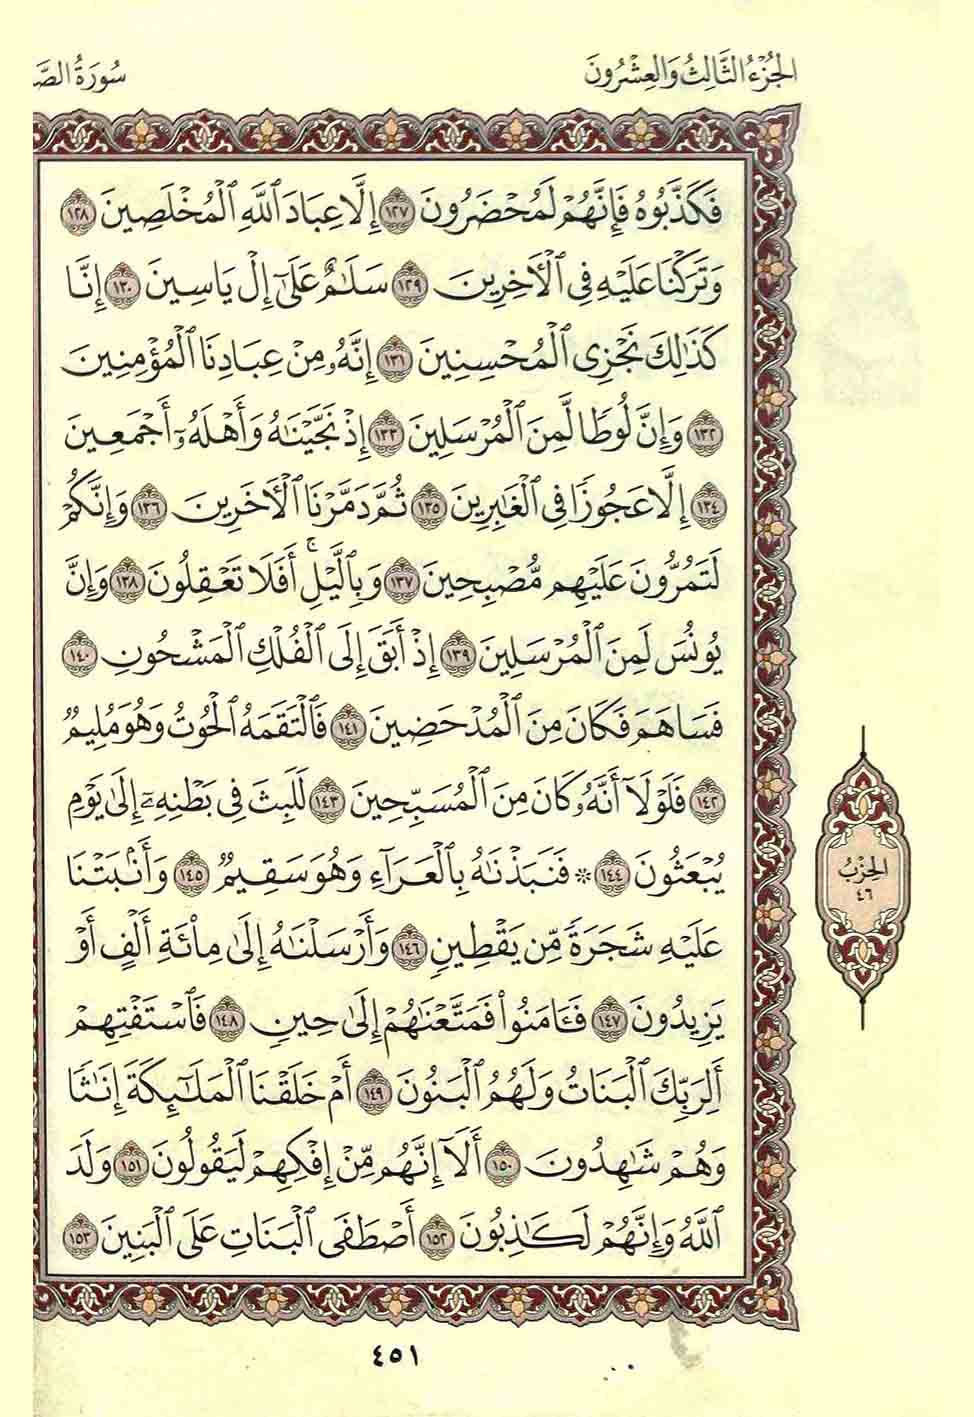 الجُزْءُ الثَّالِثُ وَالعِشْرُونَ
سُورَةُ
فَكَذَّبُوهُ فَإِنَّهُمْ لَمُحْضَرُونَ ١٢٧ إِلَّا عِبَادَ ٱللَّهِ ٱلْمُخْلَصِينَ ١٢٨
وَتَرَكْنَا عَلَيْهِ فِى ٱلْأَخِرِينَ ١٢٩ سَلَٰمٌ عَلَىٰٓ إِلْ يَاسِينَ ١٣٠ إِنَّا
كَذَٰلِكَ نَجْزِى ٱلْمُحْسِنِينَ ١٣١ إِنَّهُۥ مِنْ عِبَادِنَا ٱلْمُؤْمِنِينَ
١٣٢ وَإِنَّ لُوطًا لَّمِنَ ٱلْمُرْسَلِينَ ١٣٣ إِذْ نَجَّيْنَٰهُ وَأَهْلَهُۥٓ أَجْمَعِينَ
١٣٤ إِلَّا عَجُوزًا فِى ٱلْغَٰبِرِينَ ١٣٥ ثُمَّ دَمَّرْنَا ٱلْأَخَرِينَ ١٣٦ وَإِنَّكُمْ
لَتَمُرُّونَ عَلَيْهِم مُّصْبِحِينَ ١٣٧ وَبِٱلَّيْلِۚ أَفَلَا تَعْقِلُونَ ١٣٨ وَإِنَّ
يُونُسَ لَمِنَ ٱلْمُرْسَلِينَ ١٣٩ إِذْ أَبَقَ إِلَى ٱلْفُلْكِ ٱلْمَشْحُونِ ١٤٠
فَسَاهَمَ فَكَانَ مِنَ ٱلْمُدْحَضِينَ ١٤١ فَٱلْتَقَمَهُ ٱلْحُوتُ وَهُوَ مُلِيمٌ
١٤٢ فَلَوْلَآ أَنَّهُۥ كَانَ مِنَ ٱلْمُسَبِّحِينَ ١٤٣ لَلَبِثَ فِى بَطْنِهِۦٓ إِلَىٰ يَوْمِ
يُبْعَثُونَ ١٤٤ ۞ فَنَبَذْنَٰهُ بِٱلْعَرَآءِ وَهُوَ سَقِيمٌ ١٤٥ وَأَنۢبَتْنَا
عَلَيْهِ شَجَرَةً مِّن يَقْطِينٍ ١٤٦ وَأَرْسَلْنَٰهُ إِلَىٰ مِا۟ئَةِ أَلْفٍ أَوْ
يَزِيدُونَ ١٤٧ فَـَٔامَنُوا۟ فَمَتَّعْنَٰهُمْ إِلَىٰ حِينٍ ١٤٨ فَٱسْتَفْتِهِمْ
أَلِرَبِّكَ ٱلْبَنَاتُ وَلَهُمُ ٱلْبَنُونَ ١٤٩ أَمْ خَلَقْنَا ٱلْمَلَٰٓئِكَةَ إِنَٰثًا
وَهُمْ شَٰهِدُونَ ١٥٠ أَلَآ إِنَّهُم مِّنْ إِفْكِهِمْ لَيَقُولُونَ ١٥١ وَلَدَ
ٱللَّهُ وَإِنَّهُمْ لَكَٰذِبُونَ ١٥٢ أَصْطَفَى ٱلْبَنَاتِ عَلَى ٱلْبَنِينَ ١٥٣
الحِزْبُ
٤٦
٤٥١